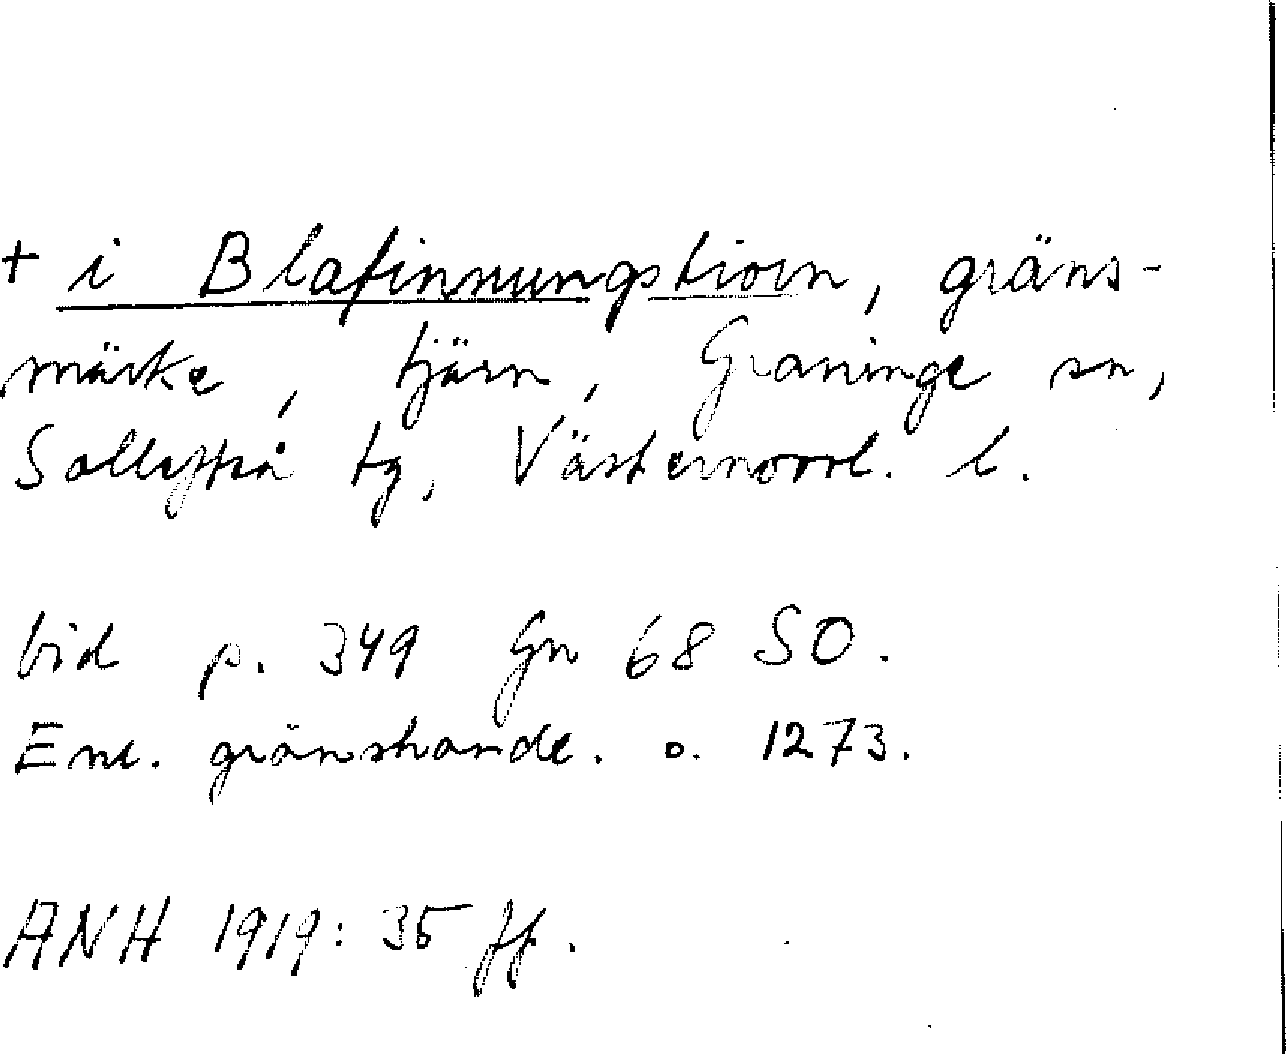 + i Blafinnungstiorn, gräns-
märke, tjärn, Graninge sn,
Sollefteå tg, Västernorrl. l.
bid p. 349 Gn 68 SO.
Enl. gränshandl. o. 1273.
ANH 1919: 35 ff.